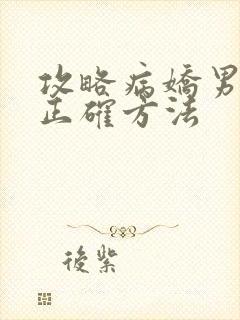 攻略病嬌男
正確方法
後紫